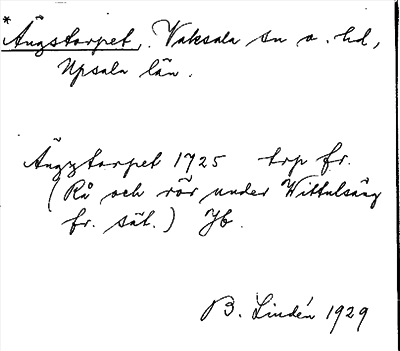 * Ängstorpet, Vaksala sn o. hd,
Upsala län.
Ängztorpet 1725 trp fr.
(Rå och rör under Wittulsäng
fr. sät.) Jb.
B. Lindén 1929